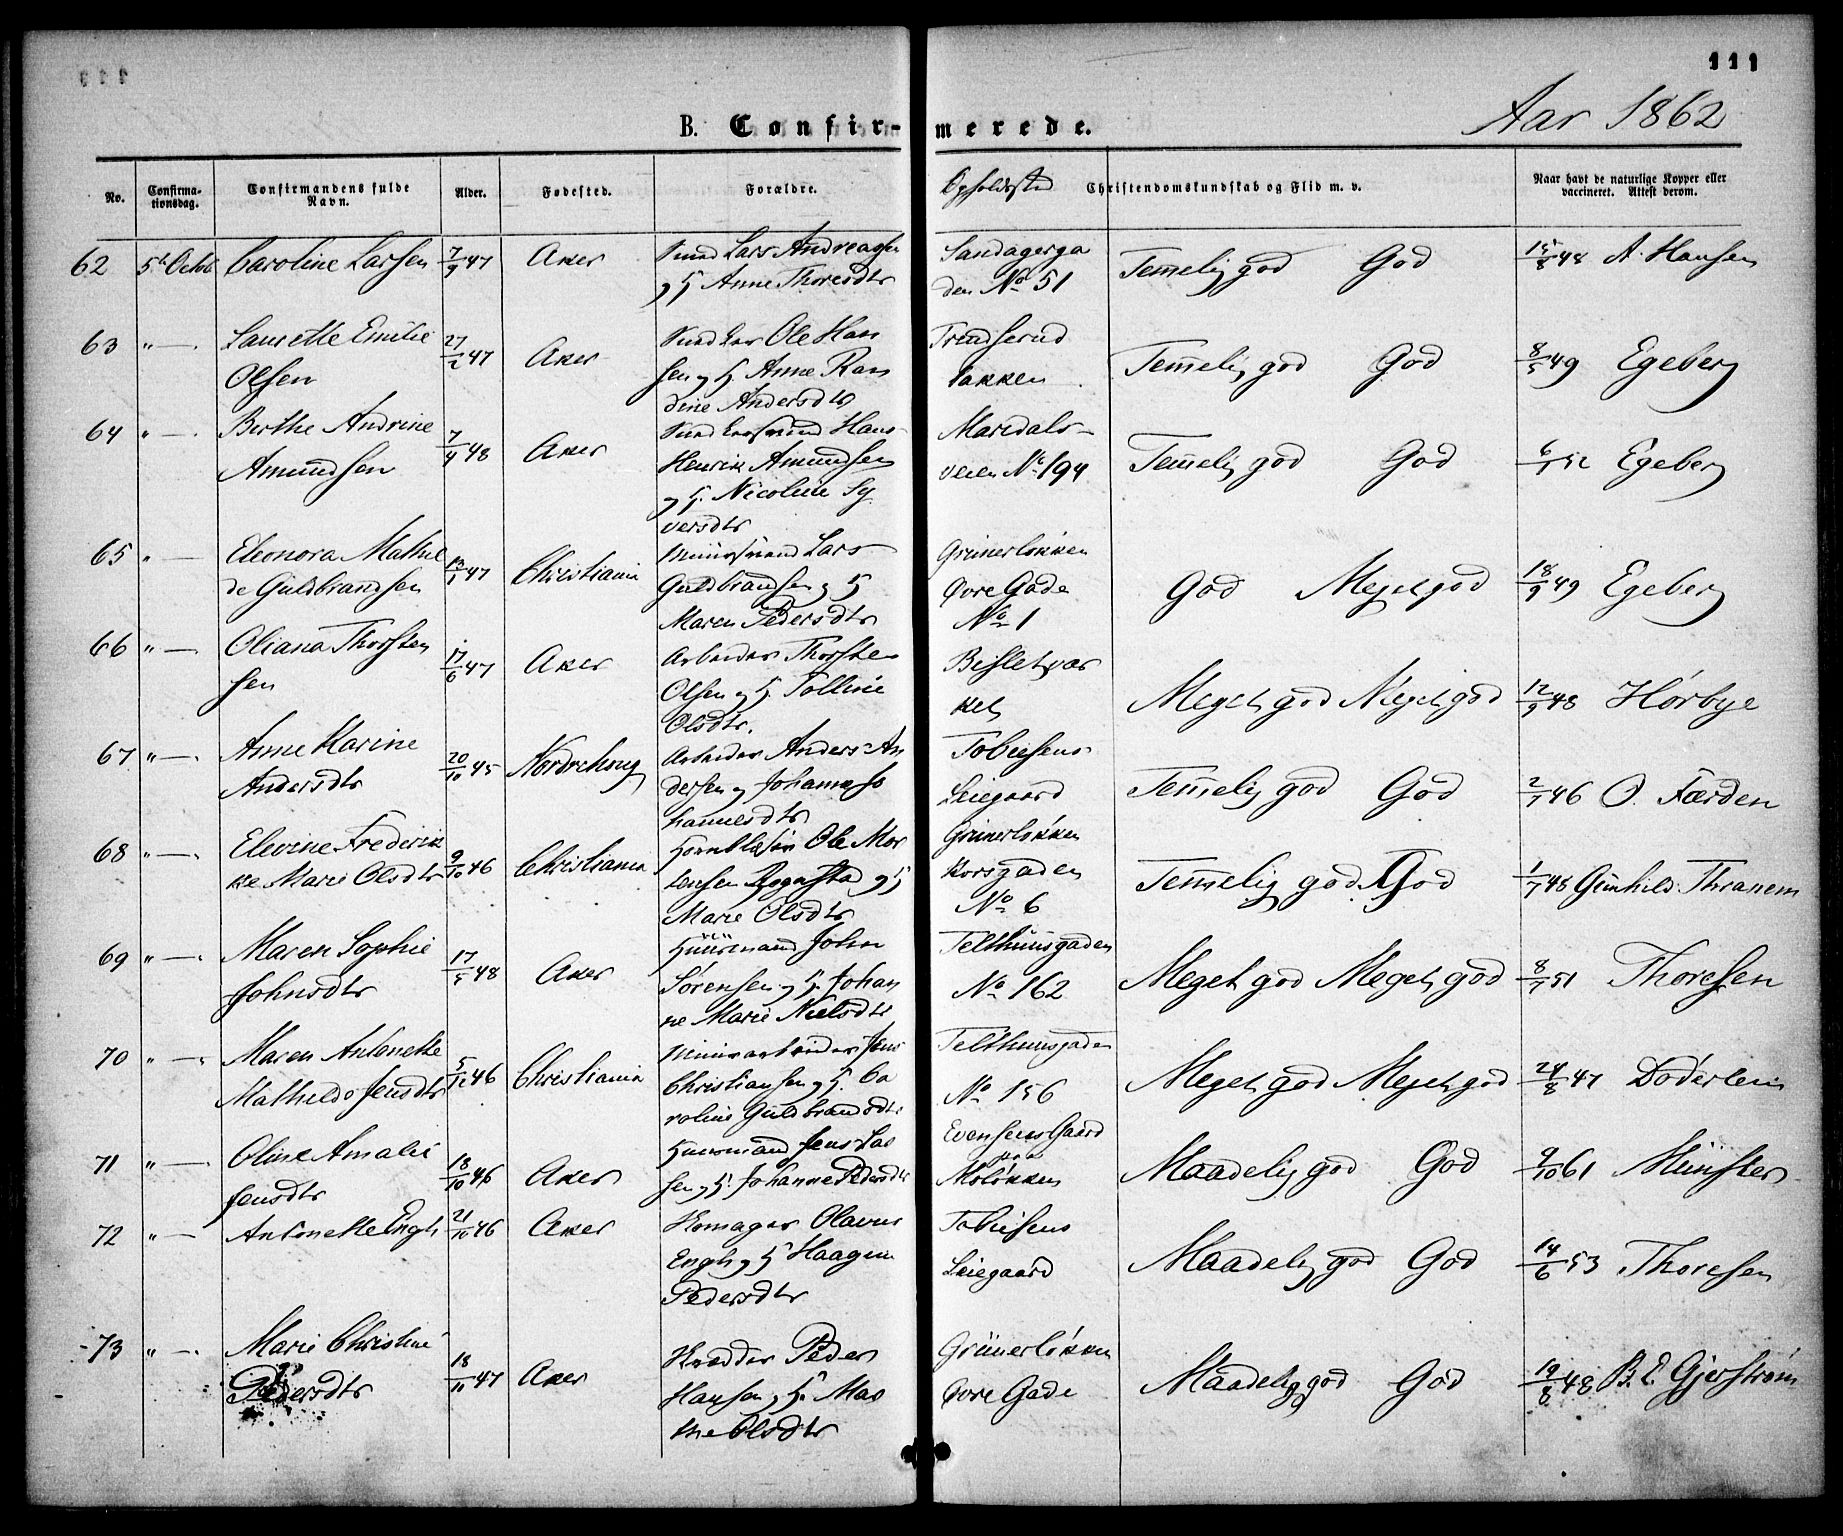 111
Aar 1862
B. Confir- merede.
No. Confirma-tionsdag. Confirmandens fulde Navn. Alder. Fødested. Forældre. Opholdssted Christendomskundskab og Flid m. v. Naar havt de naturlige Kopper eller vaccineret. Attest derom.
62 5t Octob Caroline Larsen 7/9 47 Aker Lars Andreassen Sandagerga Temmelig god God 15/8 48 A. Hansen
og H Anne Thoresdtr den No 51
63 " — Laurette Emilie 27/2 47 Aker Ole Han Temmelig god God 8/5 49 Egeberg
Olsen sen og H Anne Ran løkken
dine Andersdtr
64 " — Berthe Andrine 7/4 48 Aker Hans Maridals- Temmelig god God 6/1 52 Egeberg
Amundsen Henrik Amundsen veien No 194
og H. Nicoline Sy
versdtr
65 " — Eleonora Mathil 13/1 47 Christiania Muurmand Lars Grünerløkken God Meget god 18/9 49 Egeberg
de Guldbrandsen Guldbrandsen og H Øvre Gade
Maren Pedersdtr No 1
66 " — Oliana Thorsten 17/6 47 Aker Arbeider Thorsten Bislet vær Meget god Meget god 12/9 48 Hørbye
sen Olsen og H. Golline ket
Olsdtr.
67 " — Anne Karine 20/10 45 Nordrehoug Arbeider Anders An Tobiesens Temmelig god God 2/7 46 O. Færden
Andersdtr dersen og Johanne Jo Leiegaard
hannesdtr
68 " — Elevine Frederik 9/10 46 Christiania Hornblæser Ole Mor Grünerløkken Temmelig god God 1/7 48 Gunhild Thranem
ke Marie Olsdtr tensen og H Korsgaden
Marie Olsdtr No 6
69 " — Maren Sophie 17/5 48 Aker Huusmand John Telthuusgaden Meget god Meget god 8/7 51 Thoresen
Johnsdtr Sørensen og H. Johan No 162
ne Marie Nielsdtr
70 " — Maren Antonette 5/12 46 Christiania Muurarbeider Jens Telthuusgaden Meget god Meget god 24/8 47 Døderlein
Mathilde Jensdtr Christiansen og H. Ca No 156
roline Guldbrandsdtr
71 " — Oline Amalie 18/10 46 Aker Huusmand Jens Lar Evensens Gaard Maadelig god God 9/10 61 Münster
Jensdtr sen og H. Johanne Pedersdtr paa Moløkken
72 " — Antonette Engh 21/10 46 Aker Skomager Olavus Tobiesens Maadelig god God 14/6 53 Thoresen
Engh og H Haagine Leiegaard
Pedersdtr
73 " — Marie Christine 18/11 47 Aker Skrædder Peder Grünerløkken Maadelig god God 19/8 48 B. E. Gjerstrøm
Pedersdtr Hansen og H. Mar Øvre Gade
the Olsdtr